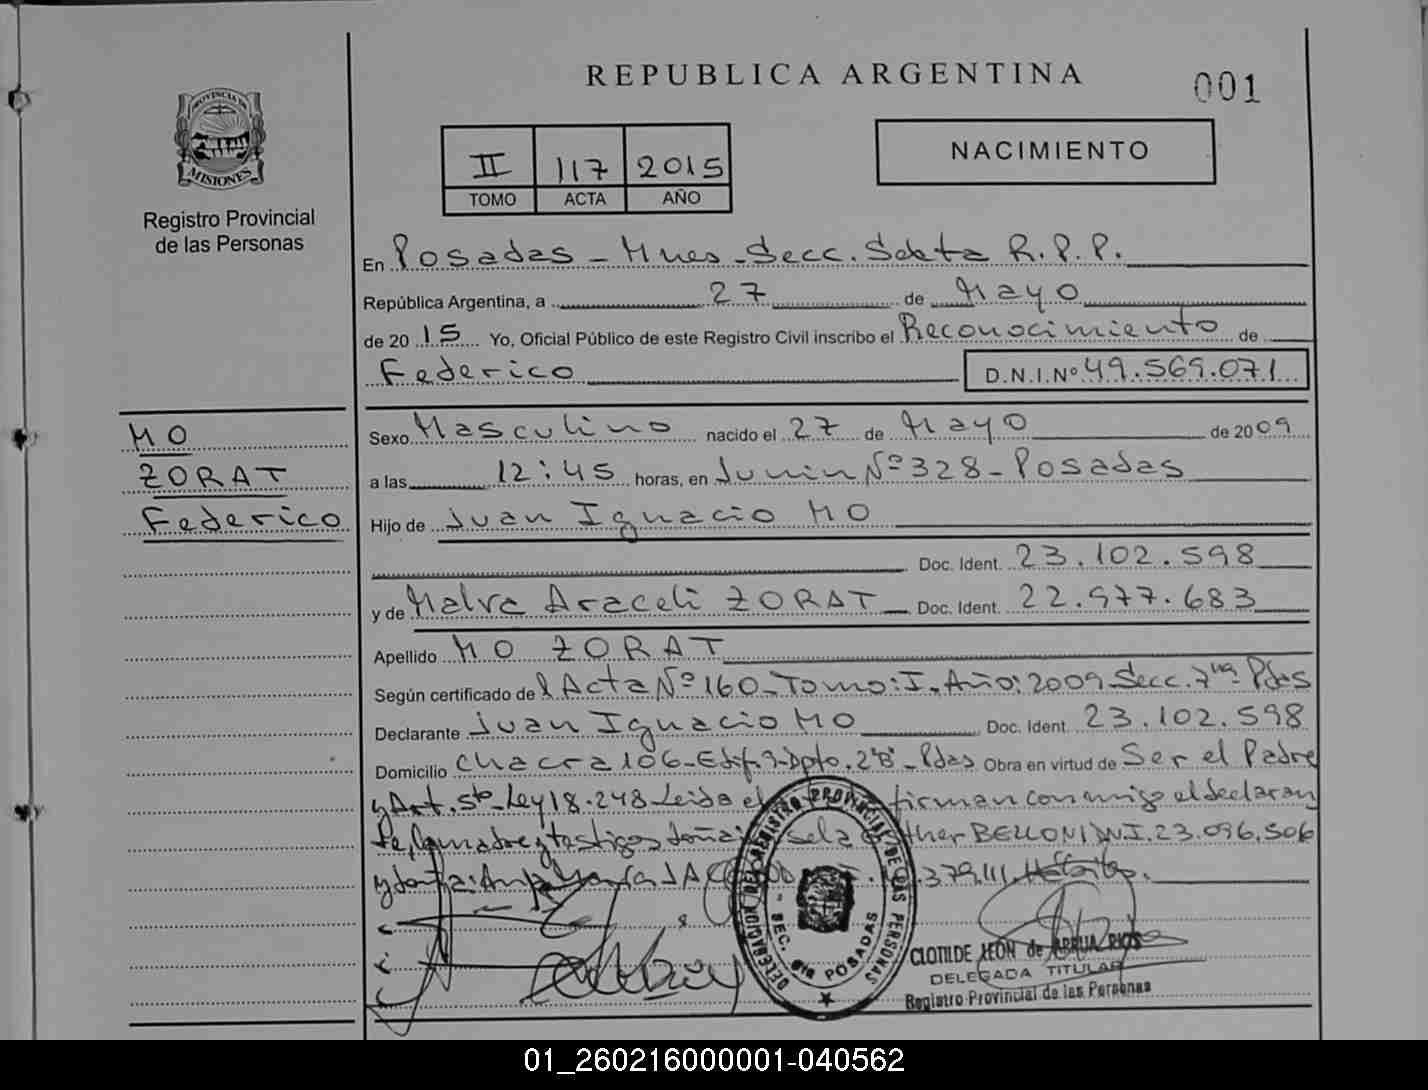 REPUBLICA ARGENTINA
001
PROVINCIA DE
MISIONES
Registro Provincial
de las Personas
II 117 2015
TOMO ACTA AÑO
NACIMIENTO
En Posadas - Mnes - Secc. Sexta R.P.P.
República Argentina, a 27 de Mayo
de 2015 Yo, Oficial Público de este Registro Civil inscribo el Reconocimiento de
Federico D.N.I.Nº 49.569.071
MO
ZORAT
Federico
Sexo Masculino nacido el 27 de Mayo de 2009
a las 12:45 horas, en Junin Nº 328 - Posadas
Hijo de Juan Ignacio MO
Doc. Ident. 23.102.598
y de Malva Araceli ZORAT Doc. Ident. 22.977.683
Apellido MO ZORAT
Según certificado del Acta Nº 160 - Tomo: I - Año: 2009 Secc. 7ma Pdas
Declarante Juan Ignacio MO Doc. Ident. 23.102.598
Domicilio Chacra 106 - Edif. 9 - Dpto. 2"B" - Pdas Obra en virtud de Ser el Padre
y Art. 5to - Ley 18.248 - Leida el firman conmigo el declaran
te, la madre y testigos doña: sela ther BELLONI DNI. 23.096.506
y doña: 379.111
DELEGACION DEL REGISTRO PROVINCIAL DE LAS PERSONAS
- SEC. 6ta POSADAS
CLOTILDE LEON de ARRUA RIOS
DELEGADA TITULAR
Registro Provincial de las Personas
01_260216000001-040562